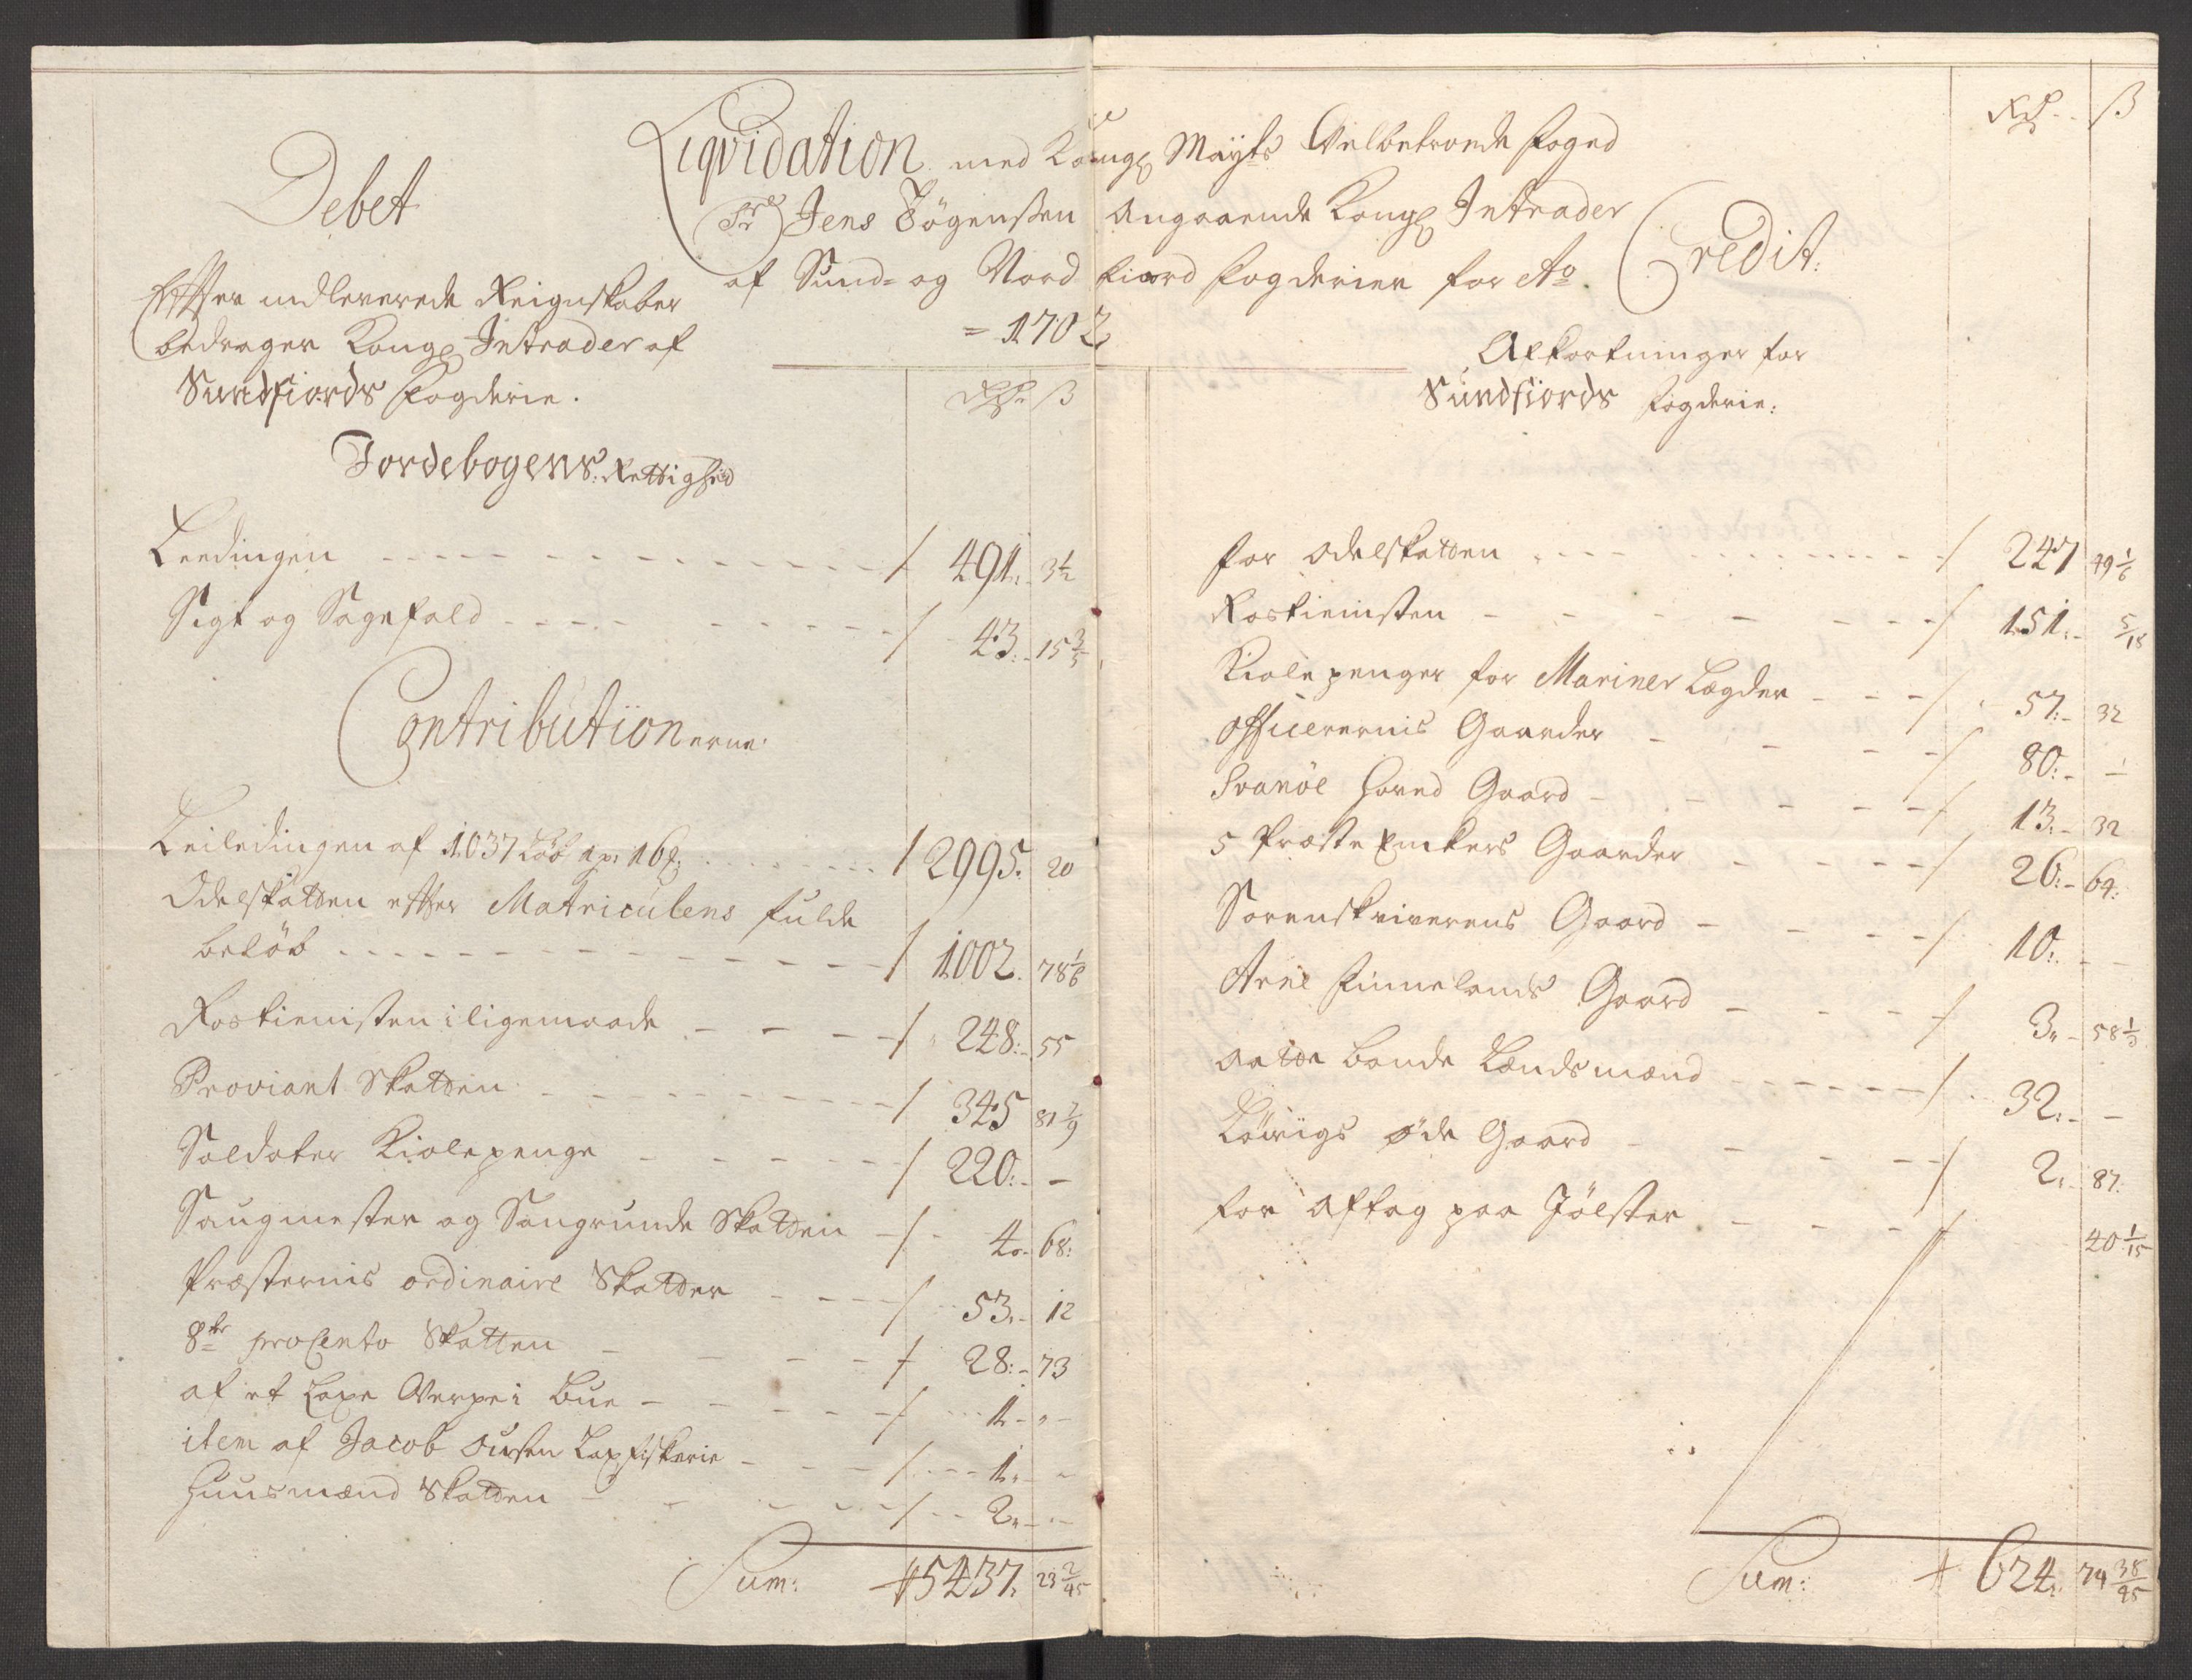 Liqvidation med Kongl Mayts Velbetroede foged
Sr Jens Bøgenssen Angaaende Kongl Intrader
af Sund- og Nord fiord fogderier for Ao
= 1702
Debet
Effter indleverede Reignskaber
bedrager Kongl Intrader af
Sundfiords fogderie.
Rdr ß
Jordebogens Rettighed
Leedingen / 491 3 1/2
Sigt og Sagefald / 43 15 3/5
Contributionerne
Leiledingen af 1037 Løb / 2995 20
Odelskatten effter Matriculens fulde
beløb / 1002 78 1/6
Rostienisten i ligemaade / 248 55
Proviant Skatten / 345 81 7/9
Soldater Kiolepenge / 220 -
Saugmester og Saugrunde Skatten / 4 68
Præsternis ordinaire Skatter / 53 12
8de proCento Skatten / 28 73
af et Laxe Verpe i Bue / 1 -
item af Jacob Laxfiskerie / 1 -
Huusmænd Skatten / 2 -
Sum: / 5437 23 2/45
Credit:
Rdr ß
Afkortninger for
Sundfiords fogderie:
for Odelskatten / 247 49 1/6
Rostienisten / 151 5/18
Kiolepenger for Mariner Lægder / 57 32
Officerernis Gaarder / 80 -
Svanøe Hoved Gaard / 13 32
5 Præste Enkers Gaarder / 26 64
Sorenskriverens Gaard / 10 -
Arne Finnelands Gaard / 3 58 1/3
Aatte Bonde Lændsmænd / 32 -
øde Gaard / 2 87
for Aftag paa Jølster / 40 1/15
Sum: / 624 74 38/45